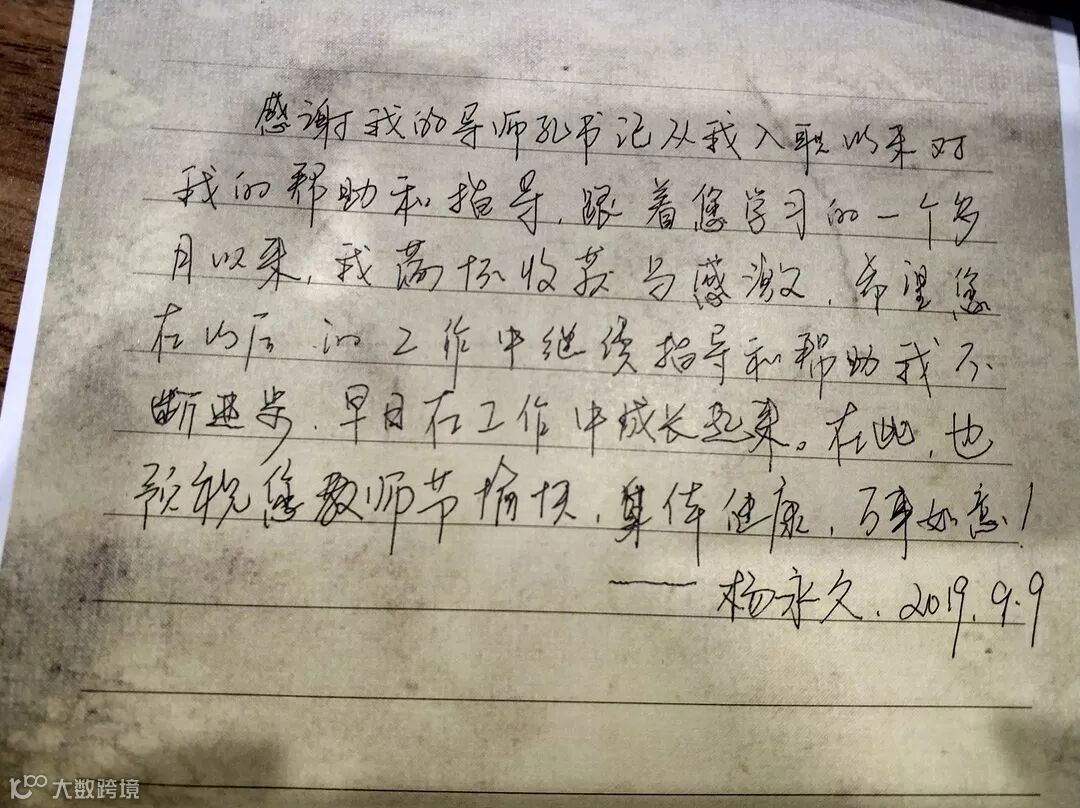 感谢我的导师孔书记从我入职以来对
我的帮助和指导，跟着您学习的一个多
月以来，我满怀收获与感激，希望您
在以后的工作中继续指导和帮助我不
断进步，早日在工作中成长起来。在此，也
预祝您教师节愉快，身体健康，万事如意！
——杨永久，2019.9.9
大数跨境